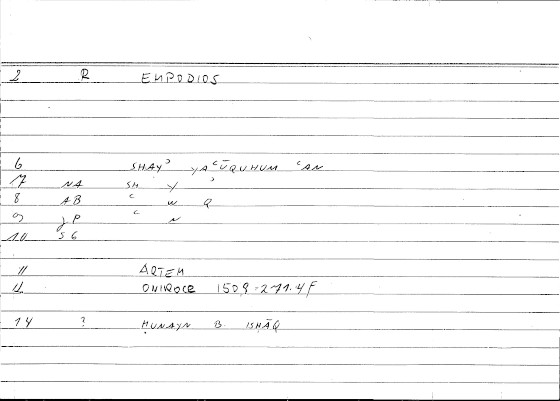 2 R EMPODIOS
6 SHAYʾ YAʿŪQUHUM ʿAN
7 NA SH Y ʾ
8 AB ʿ W Q
9 JP ʿ N
10 56
11 ARTEM
12 ONIROCR 1509-271.4F
14 ? ḤUNAYN B. ISḤĀQ